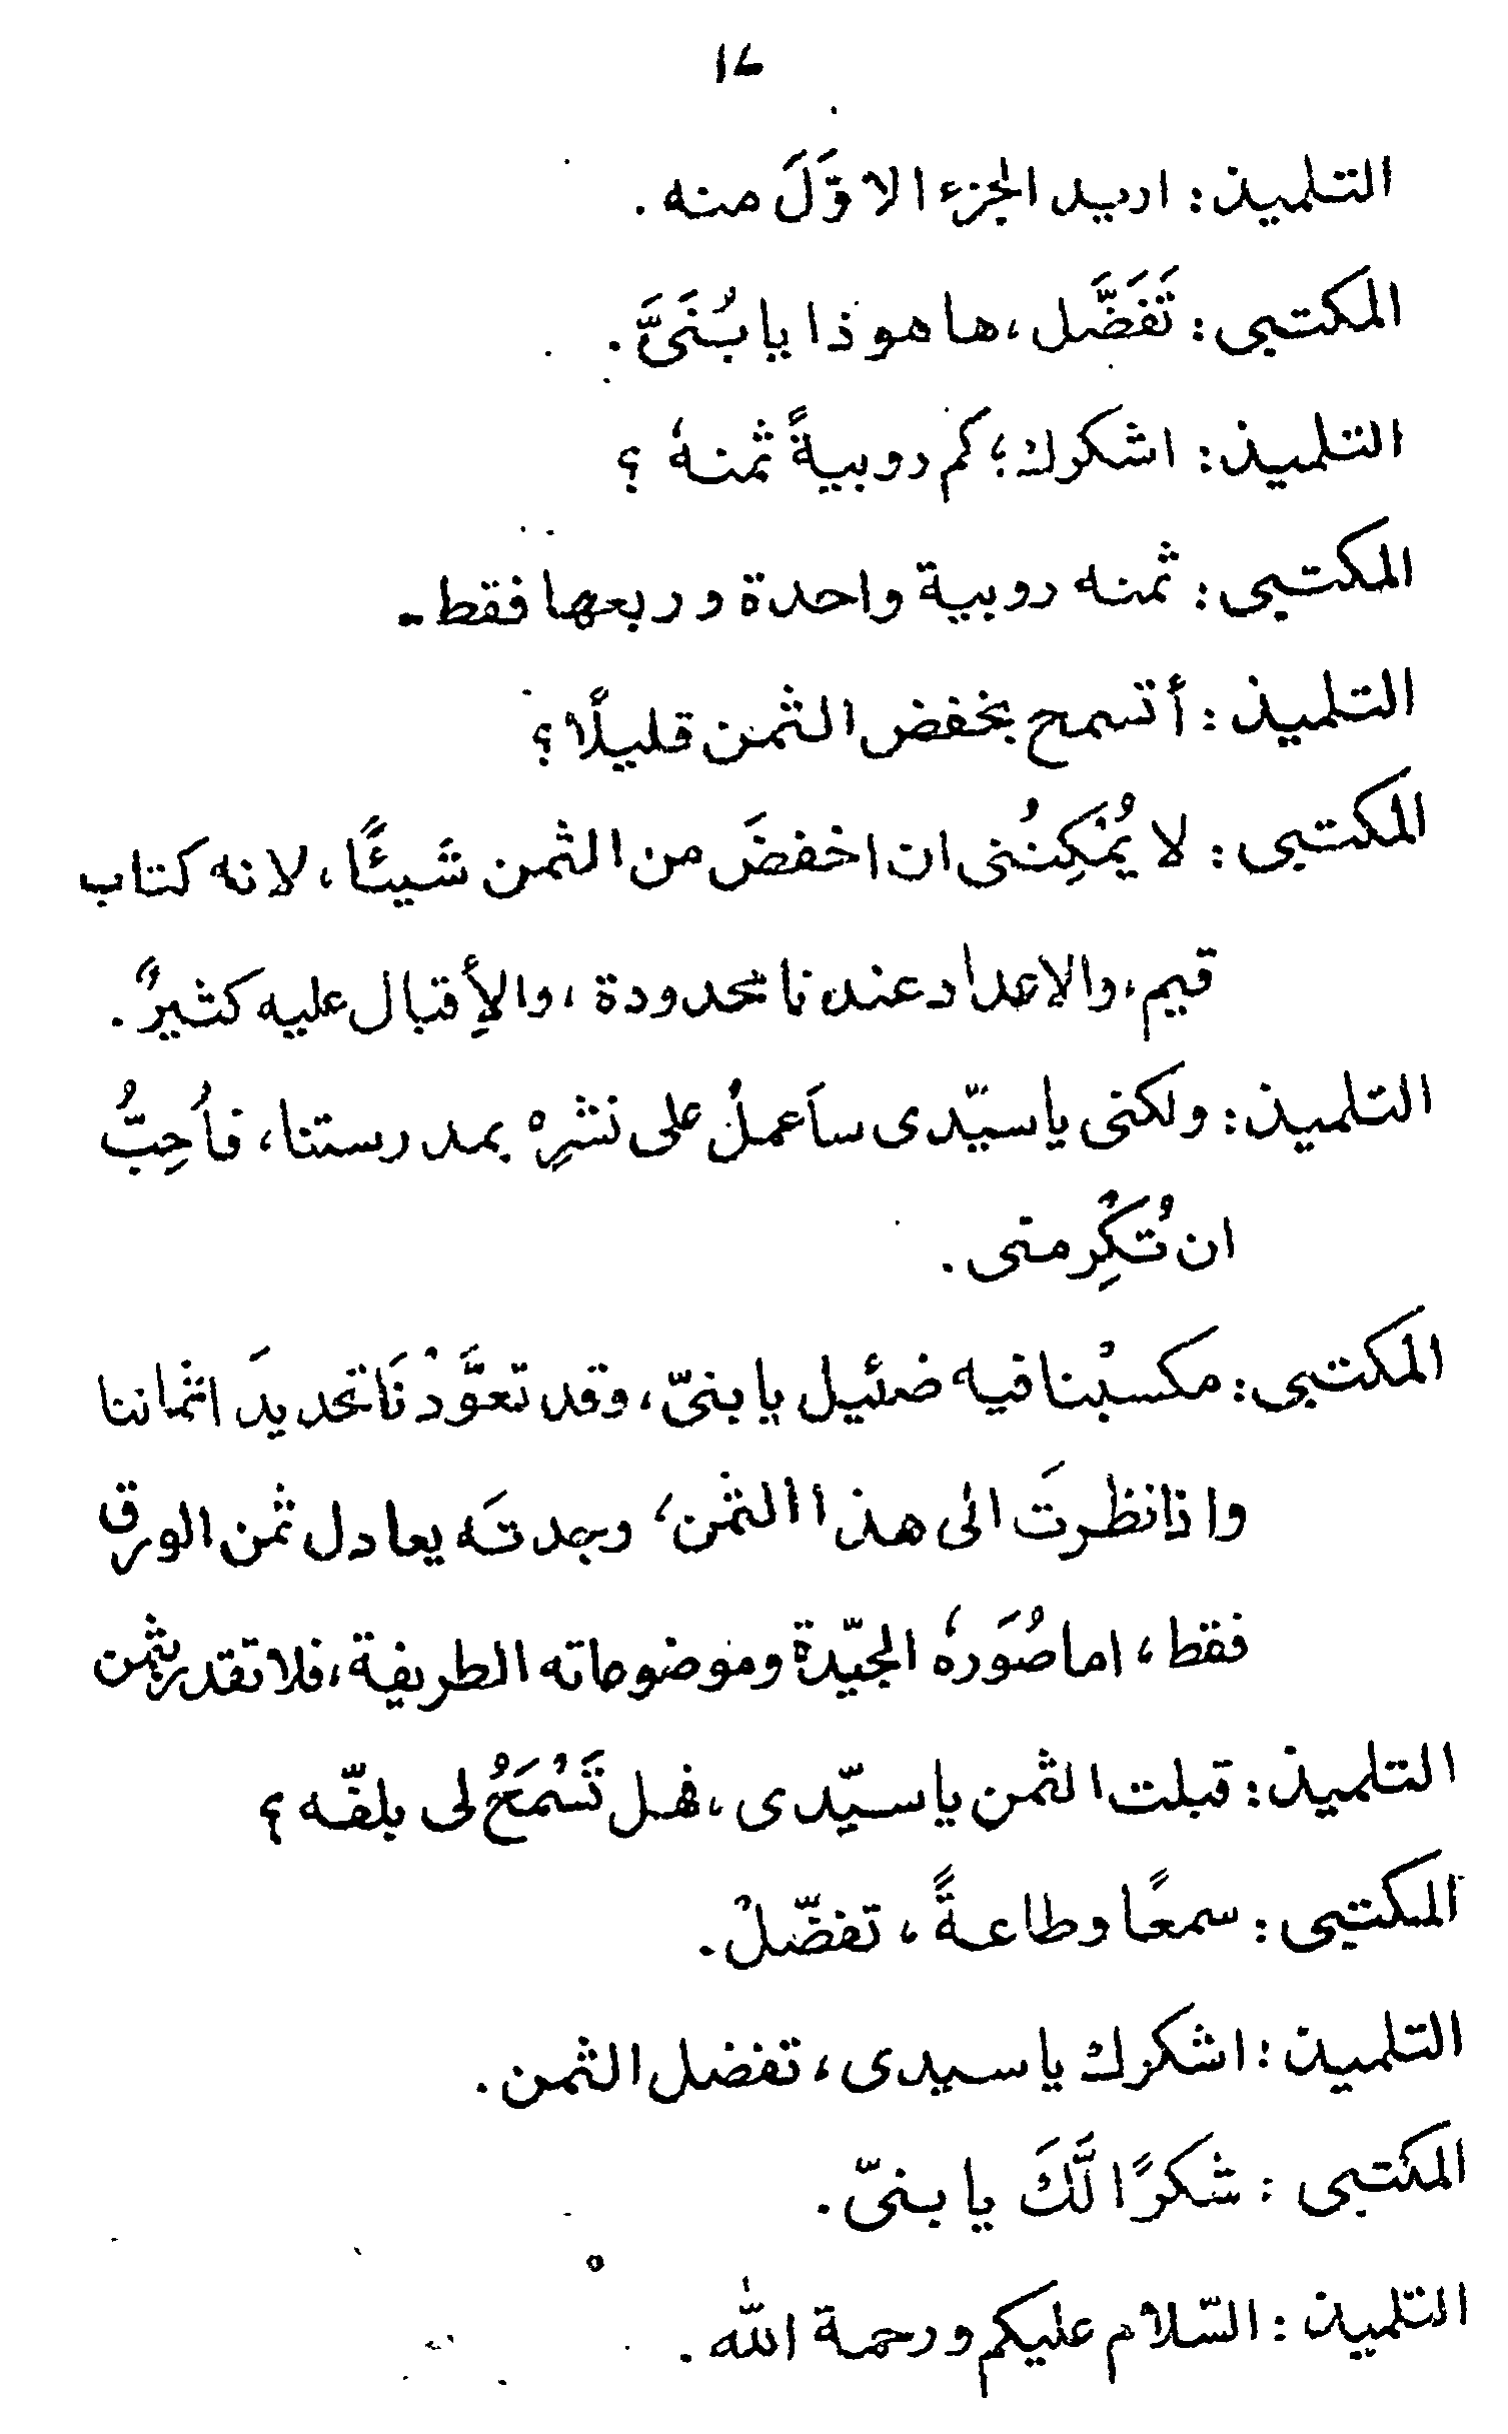 ١٧
التلميذ: اريد الجزء الاوَّلَ منه.
المكتبى: تَفَضَّل، ها هو ذا يا بُنَىَّ.
التلميذ: اشكرك؛ كم روبيةً ثمنهٗ؟
المكتبى: ثمنه روبية واحدة وربعها فقط۔
التلميذ: أتسمح بخفض الثمن قليلًا؟
المكتبى: لا يُمْكِنُنى ان اخفضَ من الثمن شَيئًا، لانه كتاب
قيم، والاعداد عندنا محدودة، والإقبال عليه كثيرٌ.
التلميذ: ولكنى يا سيّدى سأَعملُ على نشرِهٖ بمدرستنا، فأُحِبُّ
ان تُكْرِمنى.
المكتبى: مكسبْنا فيه ضئيل يا بنىّ، وقد تعوَّدْنَا تحديدَ اثماننا
واذا نظرتَ الى هذا الثمن، وجدتَه يعادل ثمن الورق
فقط، اما صُوَرهٗ الجيّدة وموضوعاته الطريفة، فلا تقدر بثمن
التلميذ: قبلت الثمن يا سيّدى، فهل تَسْمَحُ لى بلفّه؟
المكتبى: سمعًا وطاعةً، تفضّلْ.
التلميذ: اشكرك يا سيدى، تفضل الثمن.
المكتبى: شكرًا لَّكَ يا بنىّ.
التلميذ: السّلام عليكم ورحمة اللّٰه.